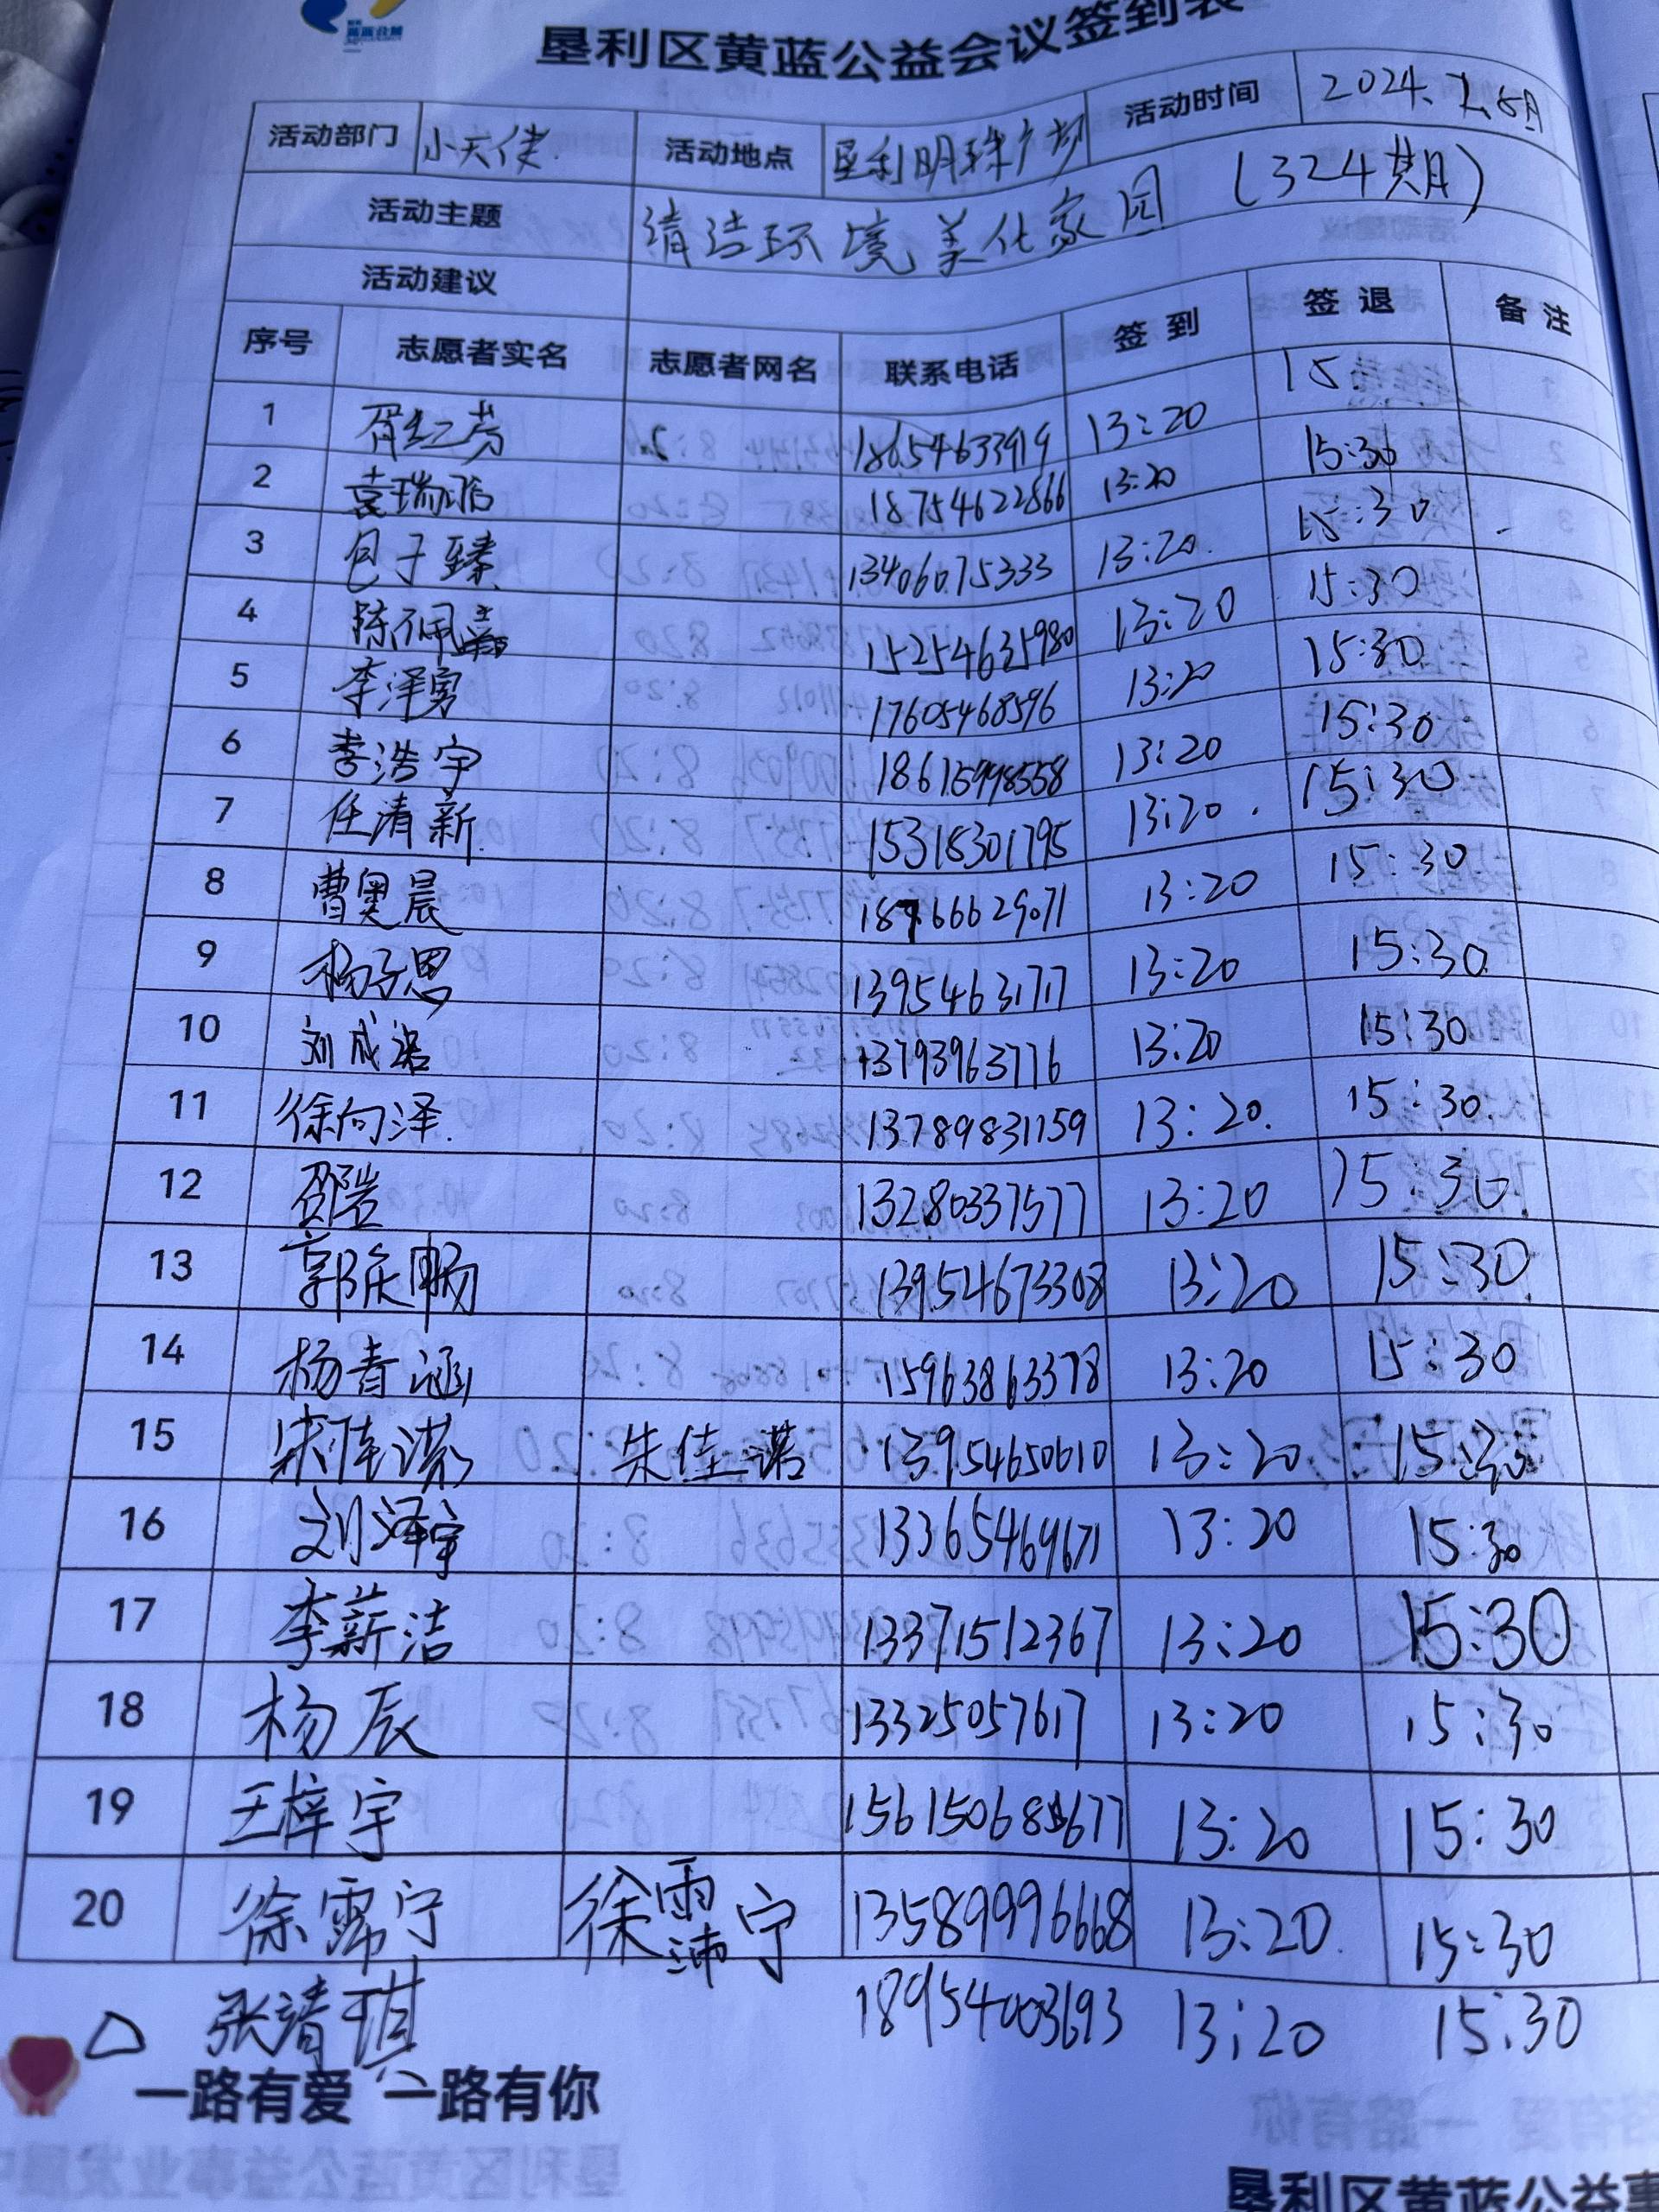 垦利区黄蓝公益会议签到表
活动部门 小天使 活动地点 垦利明珠广场 活动时间 2024.
活动主题 清洁环境 美化家园 (324期)
活动建议
序号 志愿者实名 志愿者网名 联系电话 签 到 签 退 备 注
1 胥红芳 18654633919 13:20 15:
2 袁瑞晗 18754622866 13:20 15:30
3 包于臻 13406075333 13:20 15:30
4 陈佩嘉 15254631980 13:20 15:30
5 李泽宥 17605468596 13:20 15:30
6 李浩宇 18615998558 13:20 15:30
7 任清新 15318301795 13:20 15:30
8 曹奥晨 18766629071 13:20 15:30
9 杨子思 13954631717 13:20 15:30
10 刘成诺 13793963776 13:20 15:30
11 徐向泽 13789831159 13:20 15:30
12 邵岩 13280337577 13:20 15:30
13 郭庆畅 13954673308 13:20 15:30
14 杨青涵 15963863378 13:20 15:30
15 朱佳诺 朱佳诺 13954650610 13:20 15:30
16 刘泽宇 13365469671 13:20 15:30
17 李薪洁 13371512367 13:20 15:30
18 杨辰 13325057617 13:20 15:30
19 王梓宇 13:20 15:30
20 徐霈宁 徐霈宁 13589996668 13:20 15:30
张靖琪 18954003693 13:20 15:30
一路有爱 一路有你
垦利区黄蓝公益事